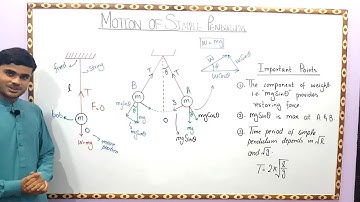 MOTION OF SIMPLE PENDULUM
W=mg
fixed
string
l
T
F=0
bob
m
O
W=mg
mean position
θ
T
T
B
m
A
m
S
O
mgSinθ
mgSinθ
mgCosθ
mg
WSinθ
WCosθ
Important Points
①. The component of weight
i.e "mgSinθ" provides
restoring force.
②. mgSinθ is max at A & B.
③. Time period of simple
pendulum depends on √l
and √g.
T=2π√l/g